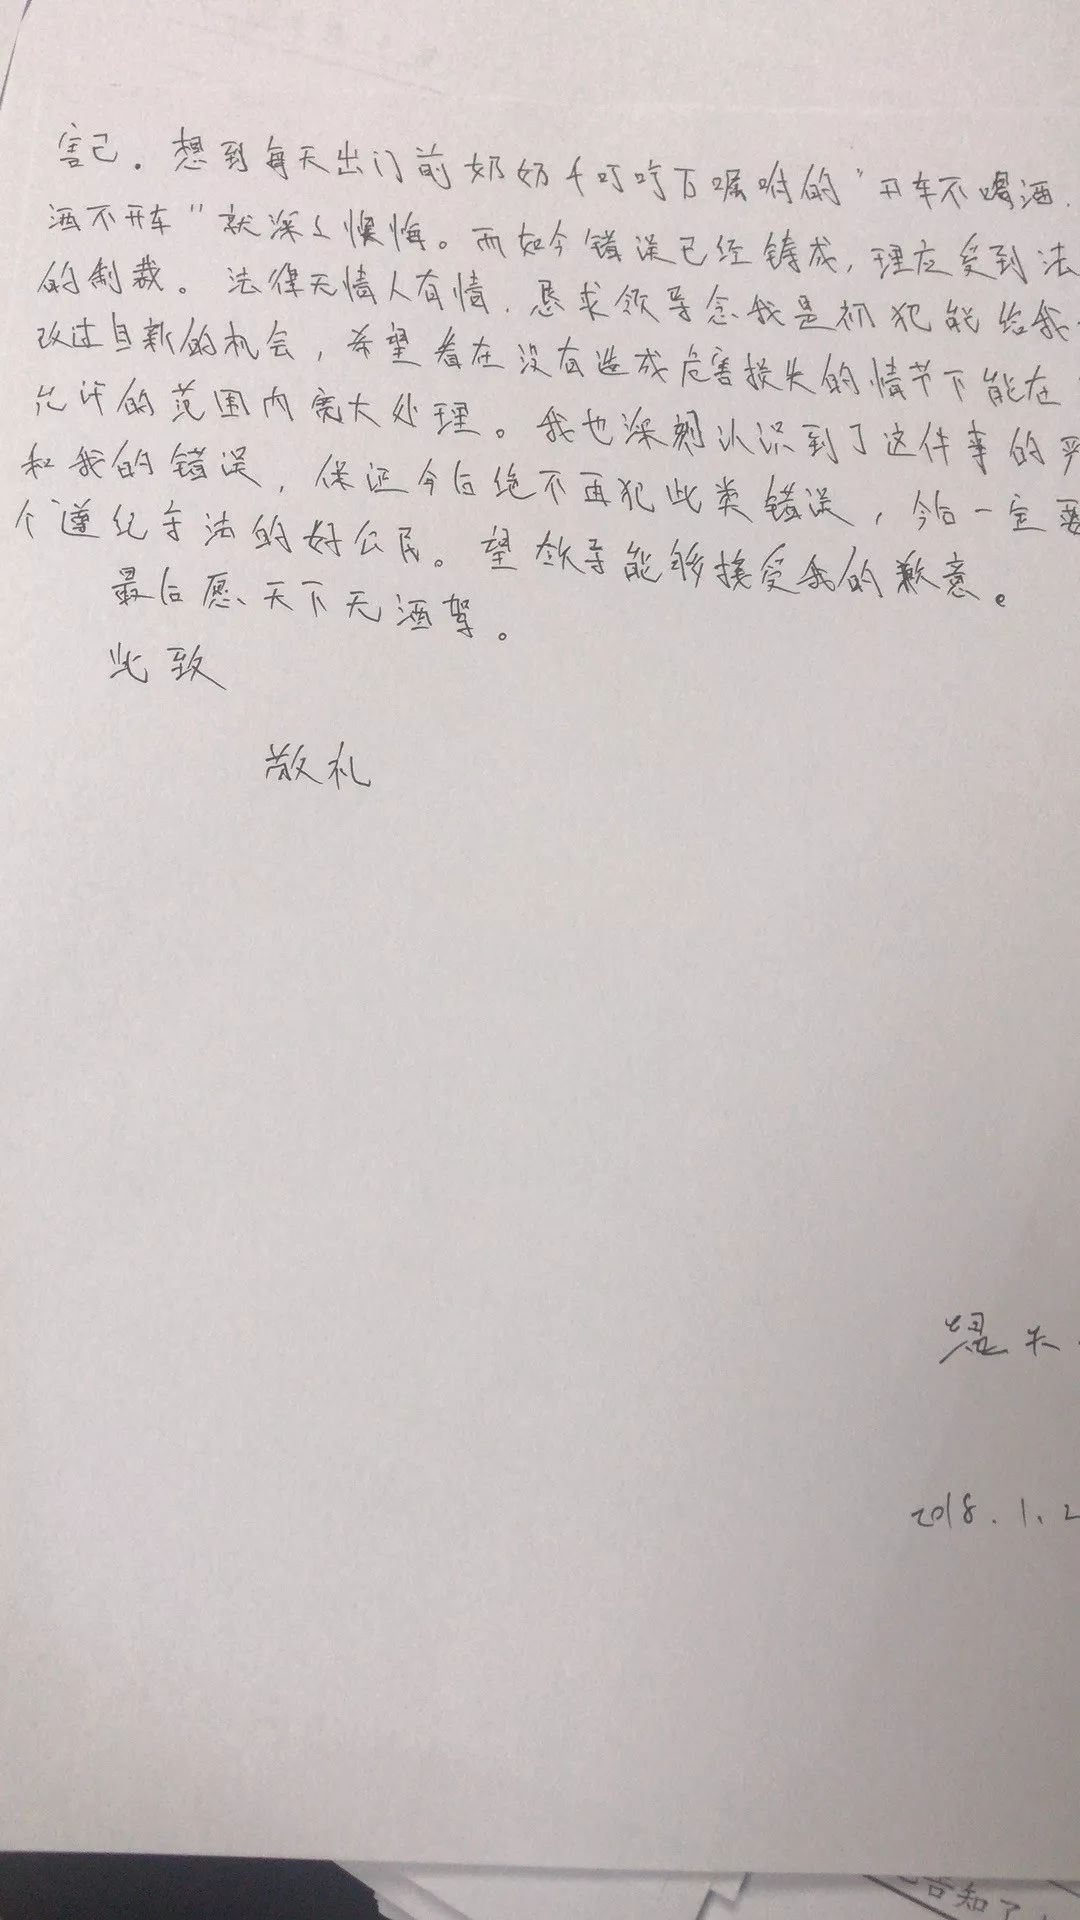 害己. 想到每天出门前奶奶千叮咛万嘱咐的“开车不喝酒.
酒不开车”就深深懊悔。而如今错误已经铸成,理应受到法
的制裁。法律无情人有情.恳求领导念我是初犯能给我
改过自新的机会,希望看在没有造成危害损失的情节下能在
允许的范围内宽大处理。我也深刻认识到了这件事的严
和我的错误,保证今后绝不再犯此类错误,今后一定要
个遵纪守法的好公民。望领导能够接受我的歉意。
最后愿天下无酒驾。
此致
敬礼
2018.1.2
告知了